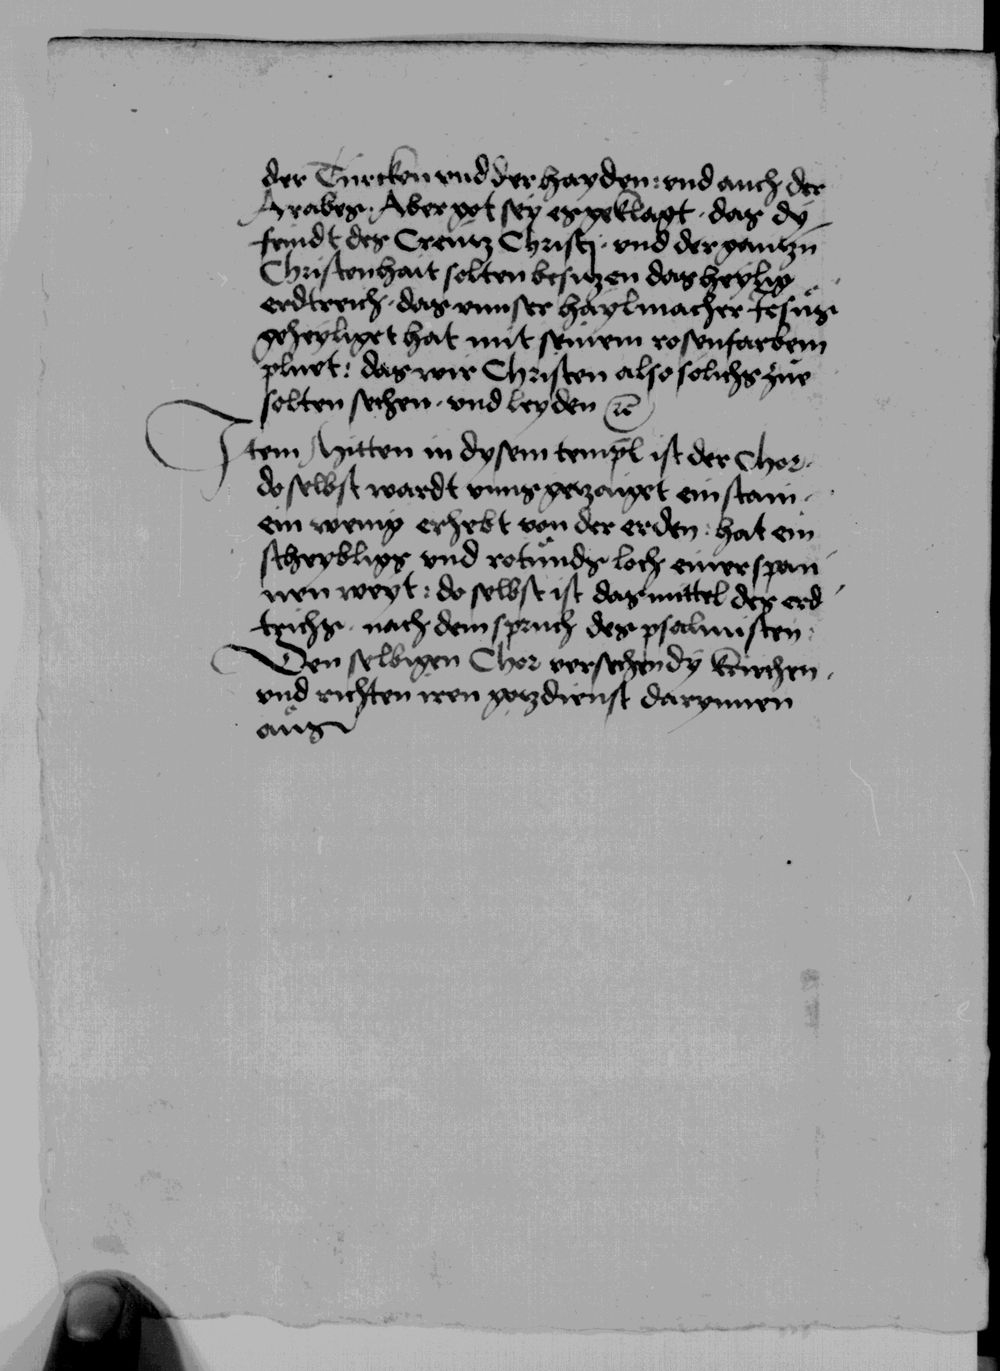 der Türcken vnd der hayden: vnd auch der
Arabes. Aber got sey es geklagt. das dy
feindt des Creütz Christj. vnd der gantzn
Christenhait solten besitzen das heylig
erdtreich. das vnnser haylmacher Jesus
geheyliget hat mit seinem rosenfarbem
pluet: das wir Christen also solichs zue
solten sechen. vnd leyden
Item Mitten in dysem templ ist der Chor.
do selbst wardt vnns gezaiget ein stain.
ein wenig erhebt von der erden: hat ein
scheybligs vnd rotunds loch einer span
nen weyt: do selbst ist das mittel des erd
trichs. nach dem spruch des psalmisten:
Den selbigen Chor versechen dy krichen.
vnd richten iren gotzdienst darynnen
aus